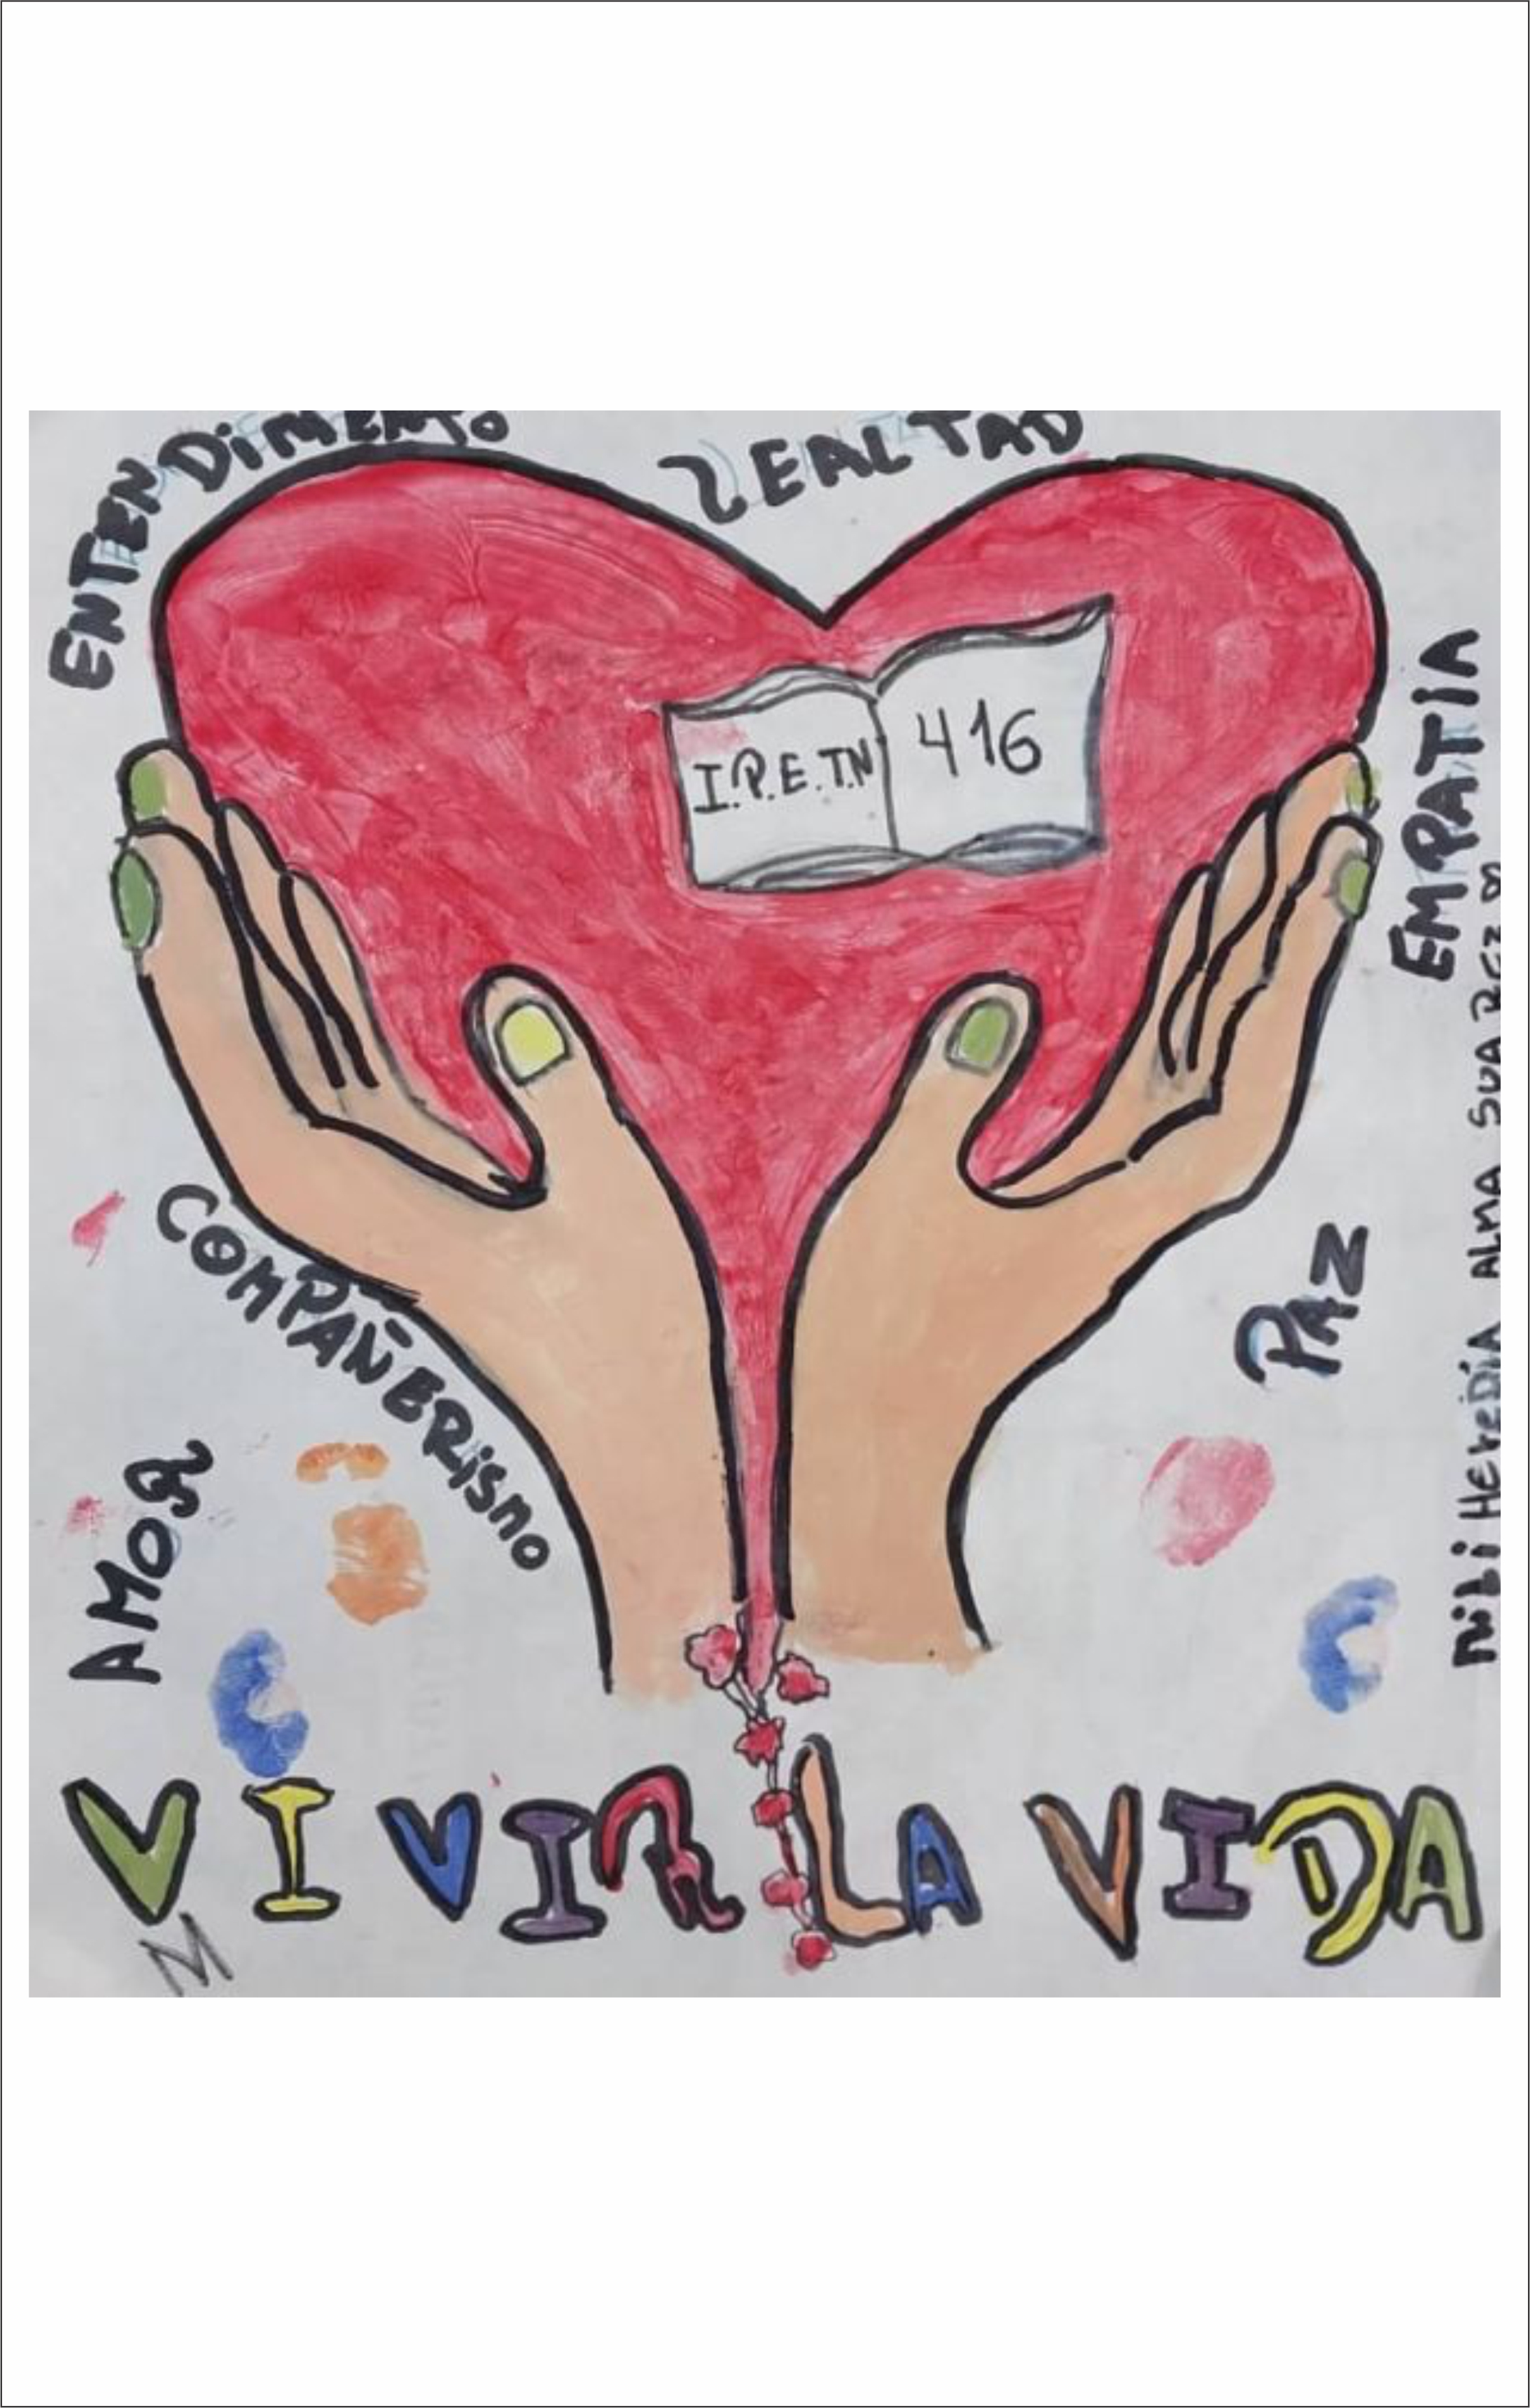 ENTENDIMIENTO
LEALTAD
I.P.E.T.N
416
EMPATIA
COMPAÑERISMO
PAZ
AMOR
MILI HEREDIA ALMA SUAREZ
VIVIR LA VIDA
M